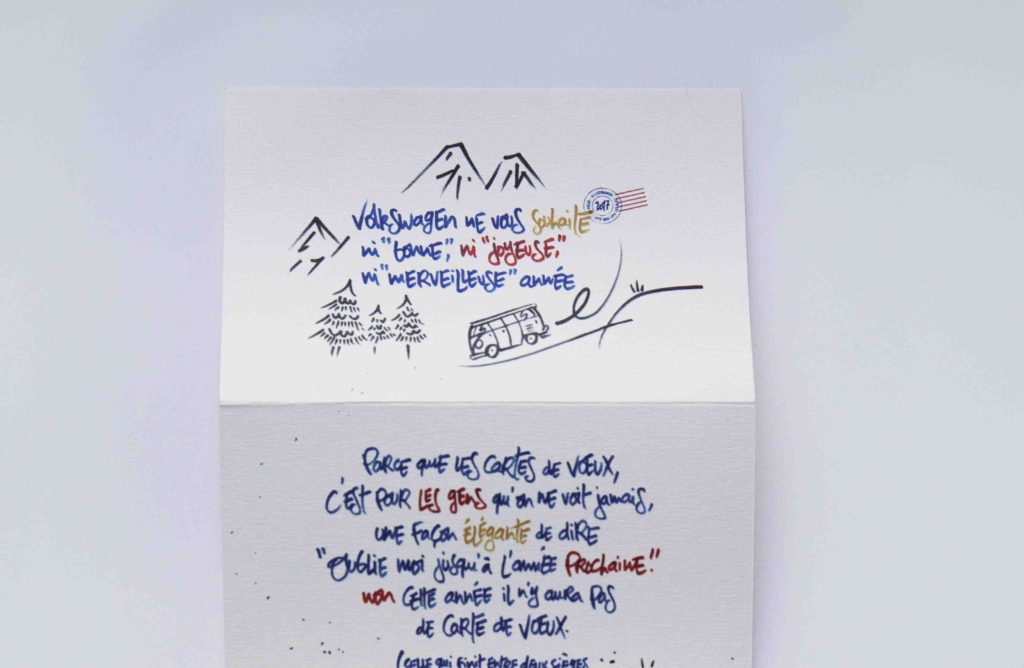 VOLKSWAGEN NE VOUS souhaite
ni "bonne", ni "joyeuse",
ni "merveilleuse" année
2017
Parce que les cartes de vœux,
c'est pour les gens qu'on ne voit jamais,
une façon élégante de dire
"Oublie moi jusqu'à l'année prochaine."
non cette année il n'y aura pas
de carte de vœux.
(celle qui finit entre deux sièges